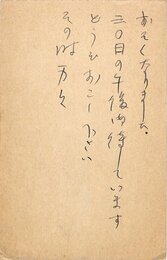 おそくなりました。
三〇日の午後お待しています
どうぞおこし下さい
その時 万々